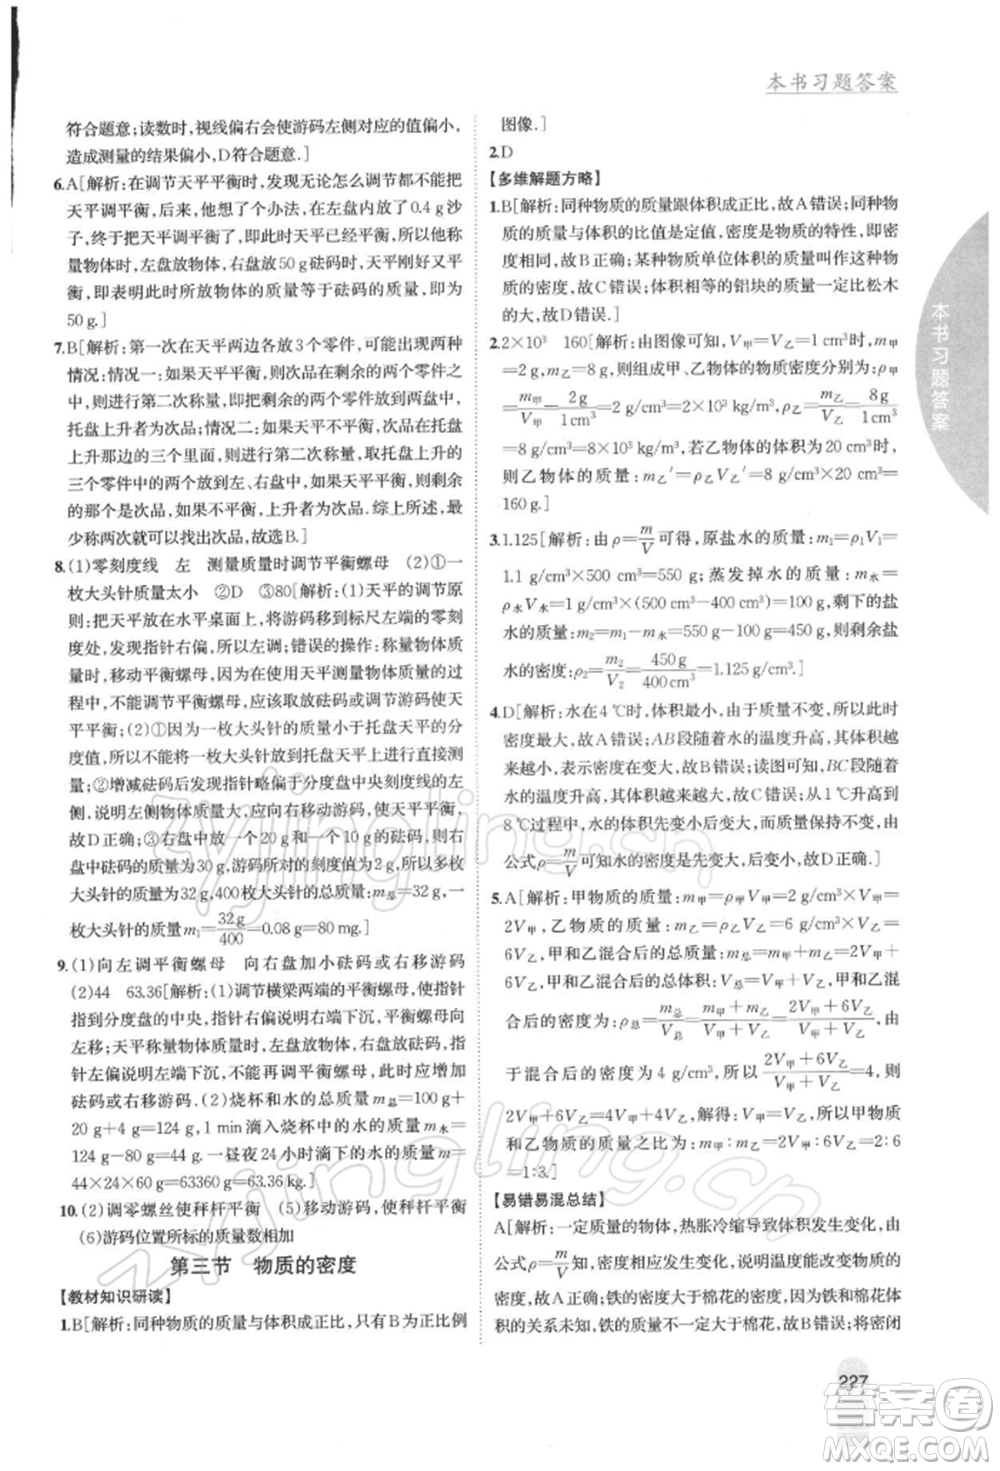 本书习题答案
符合题意;读数时,视线偏右会使游码左侧对应的值偏小,
造成测量的结果偏小,D符合题意。]
6.A[解析:在调节天平平衡时,发现无论怎么调节都不能把
天平调平衡,后来,他想了个办法,在左盘内放了0.4 g沙
子,才把天平调平衡了,当天平已经平衡,但以后用它来称
量物体时,左盘放物体,右盘放50 g砝码时,天平刚好平
衡,即表明此时所放物体的质量等于砝码的质量,即为
50 g.]
7.B[解析:第一次在天平两边各放3个零件,可能出现两种
情况:情况一:如果天平平衡,则次品在剩余的两个中,再
进行第二次称量,即把剩余的两个分别放在两盘中,托盘
托盘上升者为次品。情况二:如果天平不平衡,次品在托盘
上升一边的三个里面,再进行第二次称量,取托盘上升的
三个零件中的两个放在两端,如果平衡,则三个零件中剩余
的那个为次品,如果不平衡,上升者为次品.综上所述,最
少称两次就可以找出次品,故选B.]
8.(1)零刻度线 左 测量质量时调节平衡螺母 (2)①一
枚大头针质量太小 ②D ③80[解析:(1)天平的调节原
则:把天平放在水平桌面上,将游码移到标尺左端的零刻
度处,发现指针右偏,平衡螺母左调;错误的操作:称量物体质
量时,移动平衡螺母,应该取下物体将游码移至零刻度,使天
平平衡;(2)①因为一枚大头针的质量小于托盘天平的分
度值,所以不能把一枚大头针放到托盘天平上直接进行测
量;②增减砝码后发现指针略偏于分度盘中央刻度线的左
侧,说明左侧质量大,应向右移动游码,使天平平衡,
故D正确;③右盘中放一个20 g和一个10 g的砝码,则右
盘中砝码的质量为30 g,游码所对的刻度值为2 g,所以多枚
大头针的质量为32 g,400枚大头针的总质量:m总=32 g,一
枚大头针的质量m1=32 g/400=0.08 g=80 mg.]
9.(1)向左调平衡螺母 向右盘加小砝码或右移游码
(2)44 63.36[解析:(1)调节横梁两端的平衡螺母,使指
针指到分度盘的中央,指针右偏说明右端下沉,平衡螺母向
左移;天平称量物体的质量时,左盘放物体,右盘放砝码,指
针左偏说明左端下沉,说明砝码质量小,应增加
砝码或右移游码;(2)烧杯和水的总质量m总=100 g+
20 g+4 g=124 g,1 min滴入烧杯中的水的质量m水=
124 g-80 g=44 g.一昼夜24小时的滴水质量m=
44×24×60 g=63360 g=63.36 kg.]
10.(2)调零螺丝使秤杆平衡 (5)移动游码,使秤杆平衡
(6)游码位置所标的质量数相加
第三节 物质的密度
【教材知识研读】
1.B[解析:同种物质的质量与体积成正比,只有B为正比例
图像.]
2.D
【多维解题方略】
1.B[解析:同种物质的质量跟体积成正比,故A错误;同种物
质的质量与体积的比值是定值,密度是物质的特性,即密
度一定,故B正确;某种物质单位体积的质量叫作这种物
质的密度,故C错误;体积相等的铝块的质量一定比松木
的大,故D错误.]
2.2×10³ 160[解析:由图像可知,当V甲=V乙=1 cm³时,m甲
=2 g,m乙=8 g,则组成甲、乙物体的物质密度分别为:ρ甲
=m甲/V甲=2 g/1 cm³=2 g/cm³=2×10³ kg/m³,ρ乙=m乙/V乙=8 g/1 cm³
=8 g/cm³=8×10³ kg/m³,若乙物体的体积为20 cm³时,
则乙物体的质量:m乙′=ρ乙V乙′=8 g/cm³×20 cm³=
160 g.]
3.1.125[解析:由ρ=m/V可得,原盐水的质量:m1=ρ1V1=
1.1 g/cm³×500 cm³=550 g;蒸发掉水的质量:m水=
ρ水V水=1 g/cm³×(500 cm³-400 cm³)=100 g,剩下的盐
水的质量:m2=m1-m水=550 g-100 g=450 g,则剩余盐
水的密度:ρ2=m2/V2=450 g/400 cm³=1.125 g/cm³.]
4.D[解析:水在4 ℃时,体积最小,由于质量不变,所以此时
密度最大,故A错误;AB段随着水的温度升高,其体积越来
越小,表示密度在变大,故B错误;读图可知,BC段随着水
的温度升高,体积变大,故C错误;从0 ℃升高到
8 ℃过程中,水的体积先变小后变大,而质量保持不变,由
公式ρ=m/V可知水的密度先变大后变小,故D正确.]
5.A[解析:甲物质的质量:m甲=ρ甲V甲=2 g/cm³×V甲=
2V甲,乙物质的质量:m乙=ρ乙V乙=6 g/cm³×V乙=
6V乙,甲和乙混合后的总质量:m总=m甲+m乙=2V甲+
6V乙,甲和乙混合后的总体积:V总=V甲+V乙,甲和乙混
合后的密度为:ρ总=m总/V总=(m甲+m乙)/(V甲+V乙)=(2V甲+6V乙)/(V甲+V乙),由
于混合后的密度为4 g/cm³,所以(2V甲+6V乙)/(V甲+V乙)=4,则
2V甲+6V乙=4V甲+4V乙,解得:V甲=V乙,所以甲物质
和乙物质的质量之比为:m甲:m乙=2V甲:6V乙=2:6=
1:3.]
【易错易混总结】
A[解析:一定质量的物体,热胀冷缩导致体积发生变化,由
公式ρ=m/V可知,密度会发生变化,说明温度能改变物质的
密度,故A正确;铁的密度大于棉花的密度,但铁和棉花体
积的关系未知,铁的质量不一定大于棉花,故B错误;将密闭
227